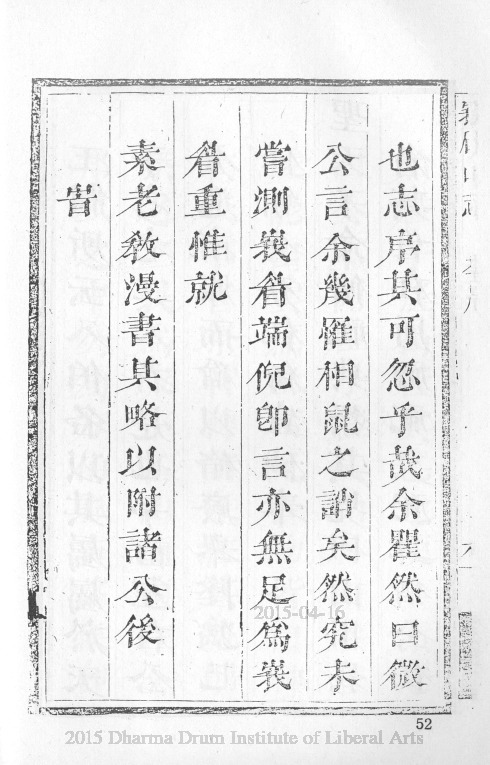 峩眉山志 卷八
也志序其可忽乎哉余瞿然曰微
公言余幾罹相鼠之誚矣然究未
嘗測峩眉端倪即言亦無足爲峩
眉重惟就
素老敎漫書其略以附諸公後
旹
2015-04-16
52
2015 Dharma Drum Institute of Liberal Arts